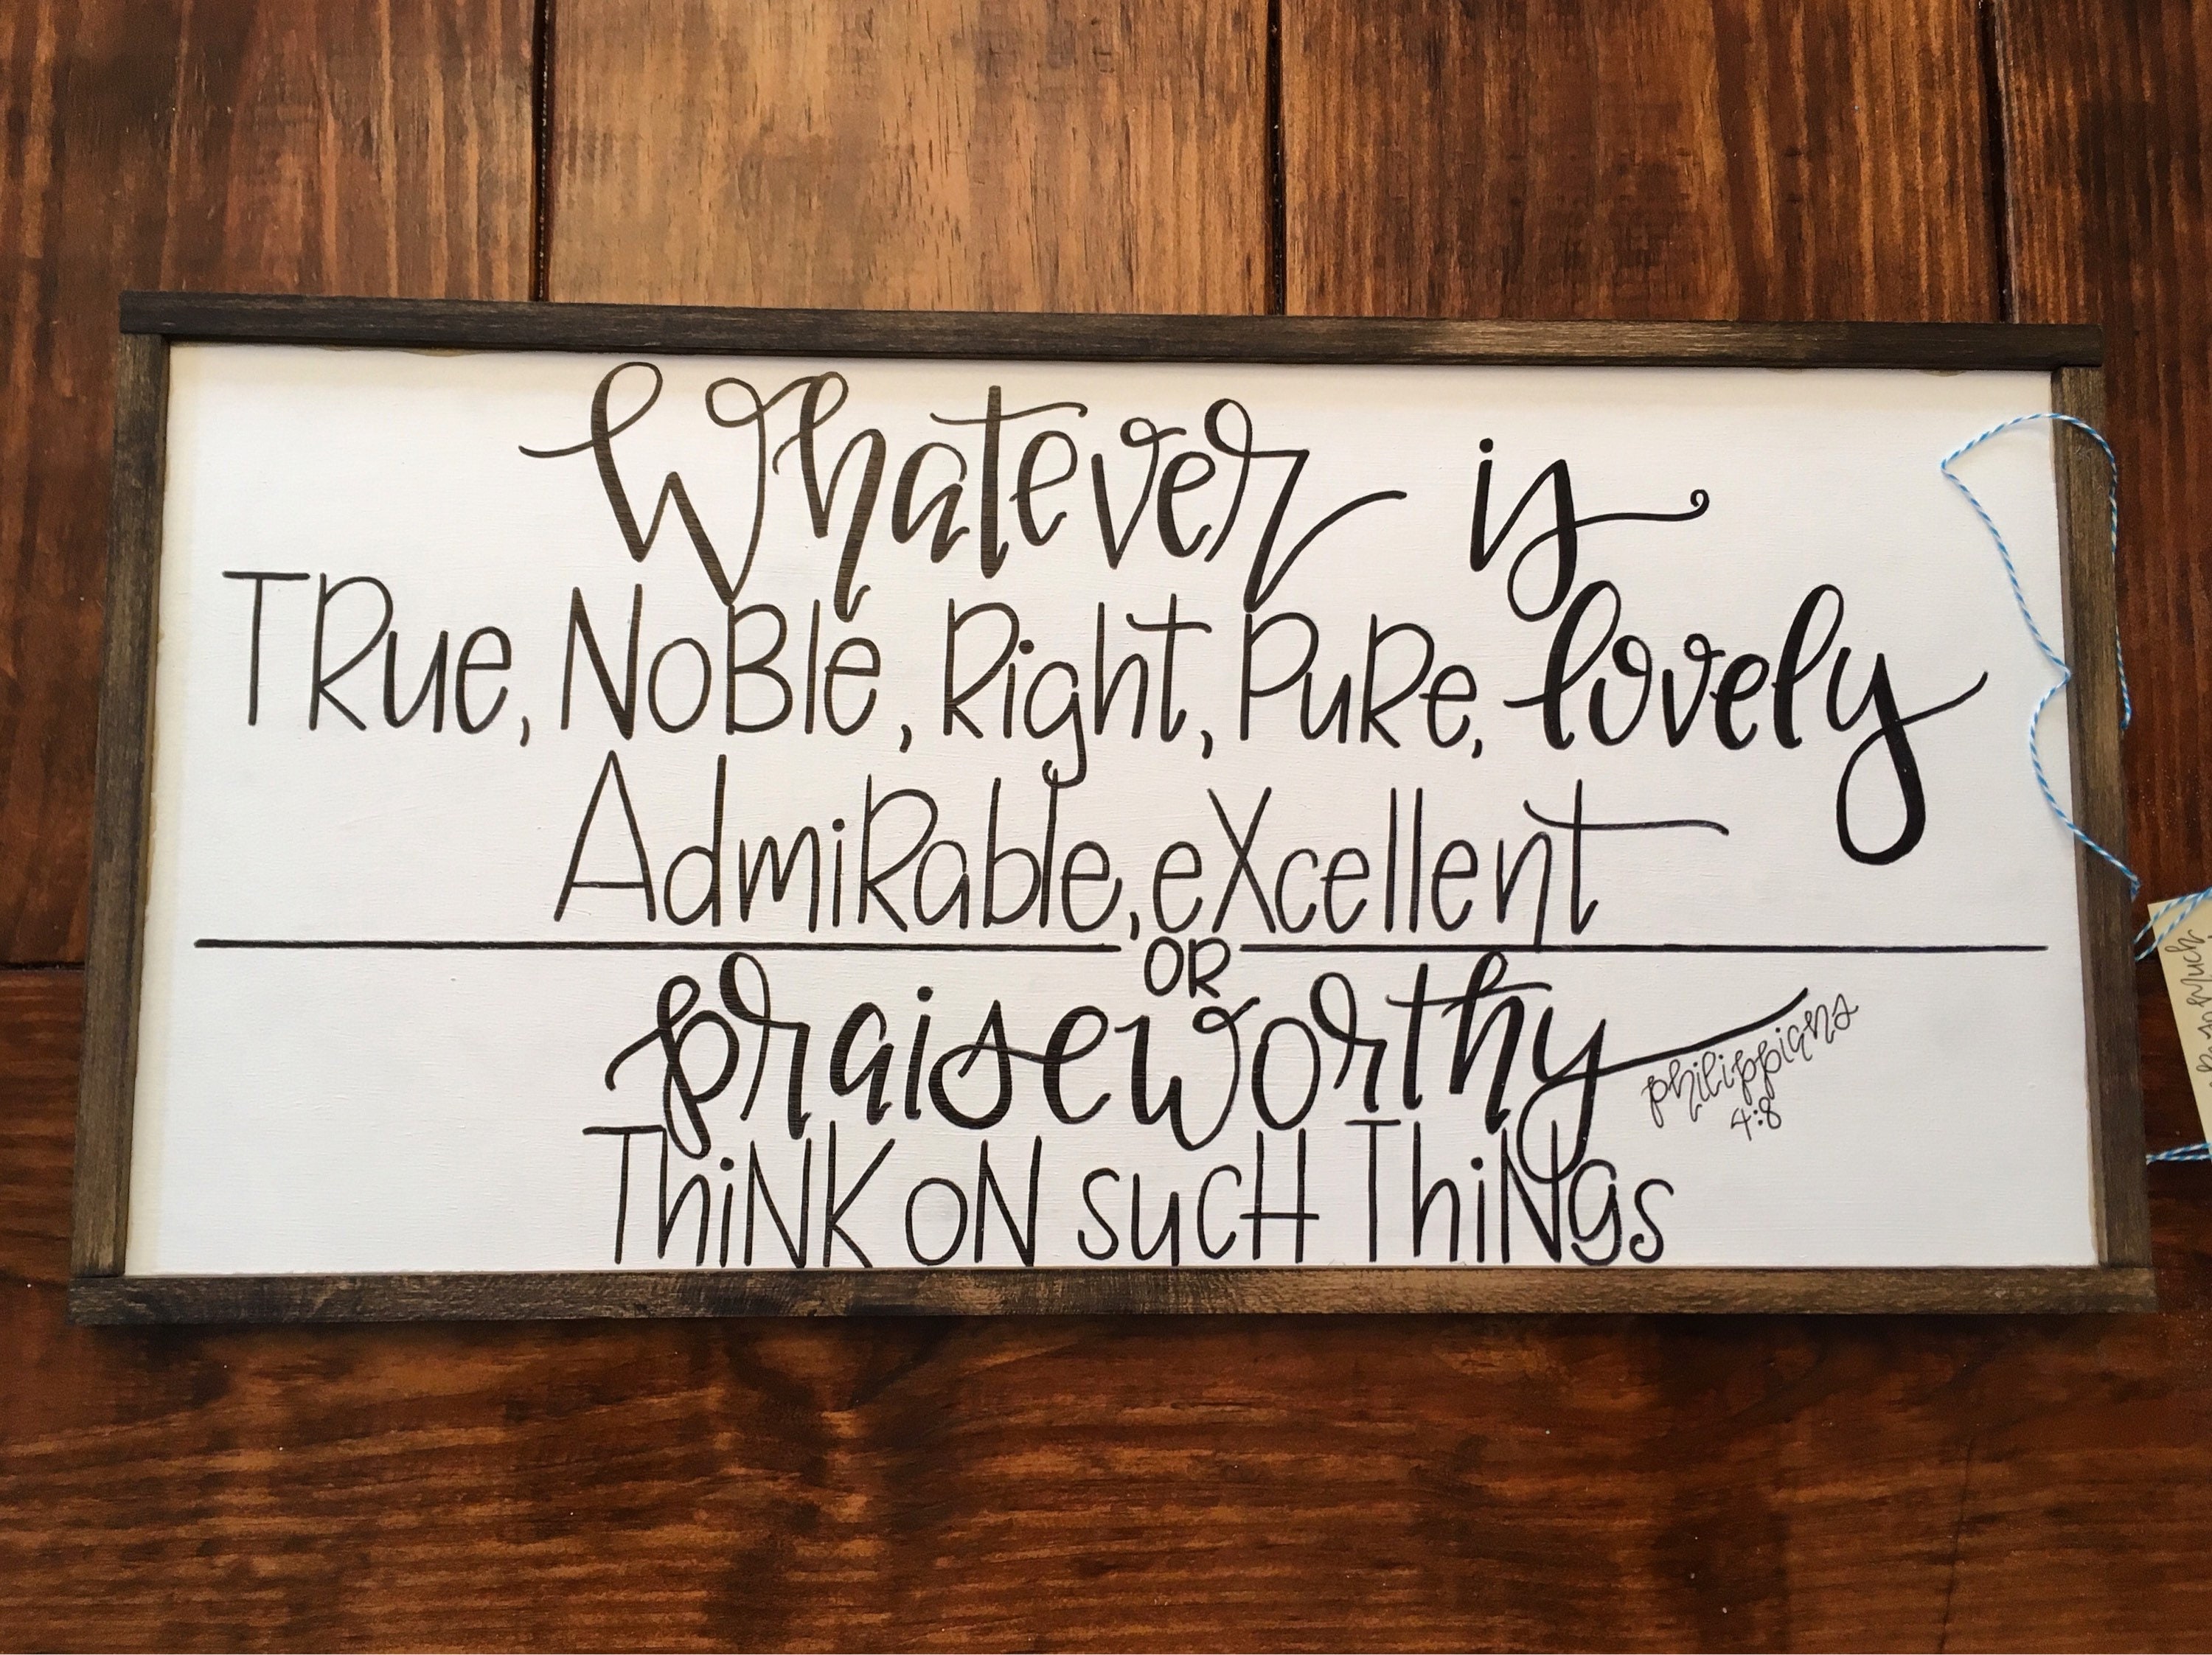 Whatever is
TRue, NoBle, Right, PuRe, lovely
AdmiRable, eXcellent
OR
praiseworthy
philippians
4:8
ThiNK oN sucH ThiNgs
Much